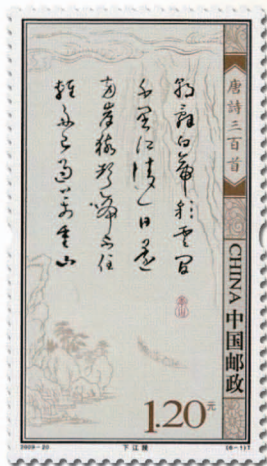 唐詩三百首
朝辭白帝彩雲間
千里江陵一日還
兩岸猿聲啼不住
輕舟已過萬重山
CHINA 中国邮政
1.20元
2009-20
下江陵
(6-1)T